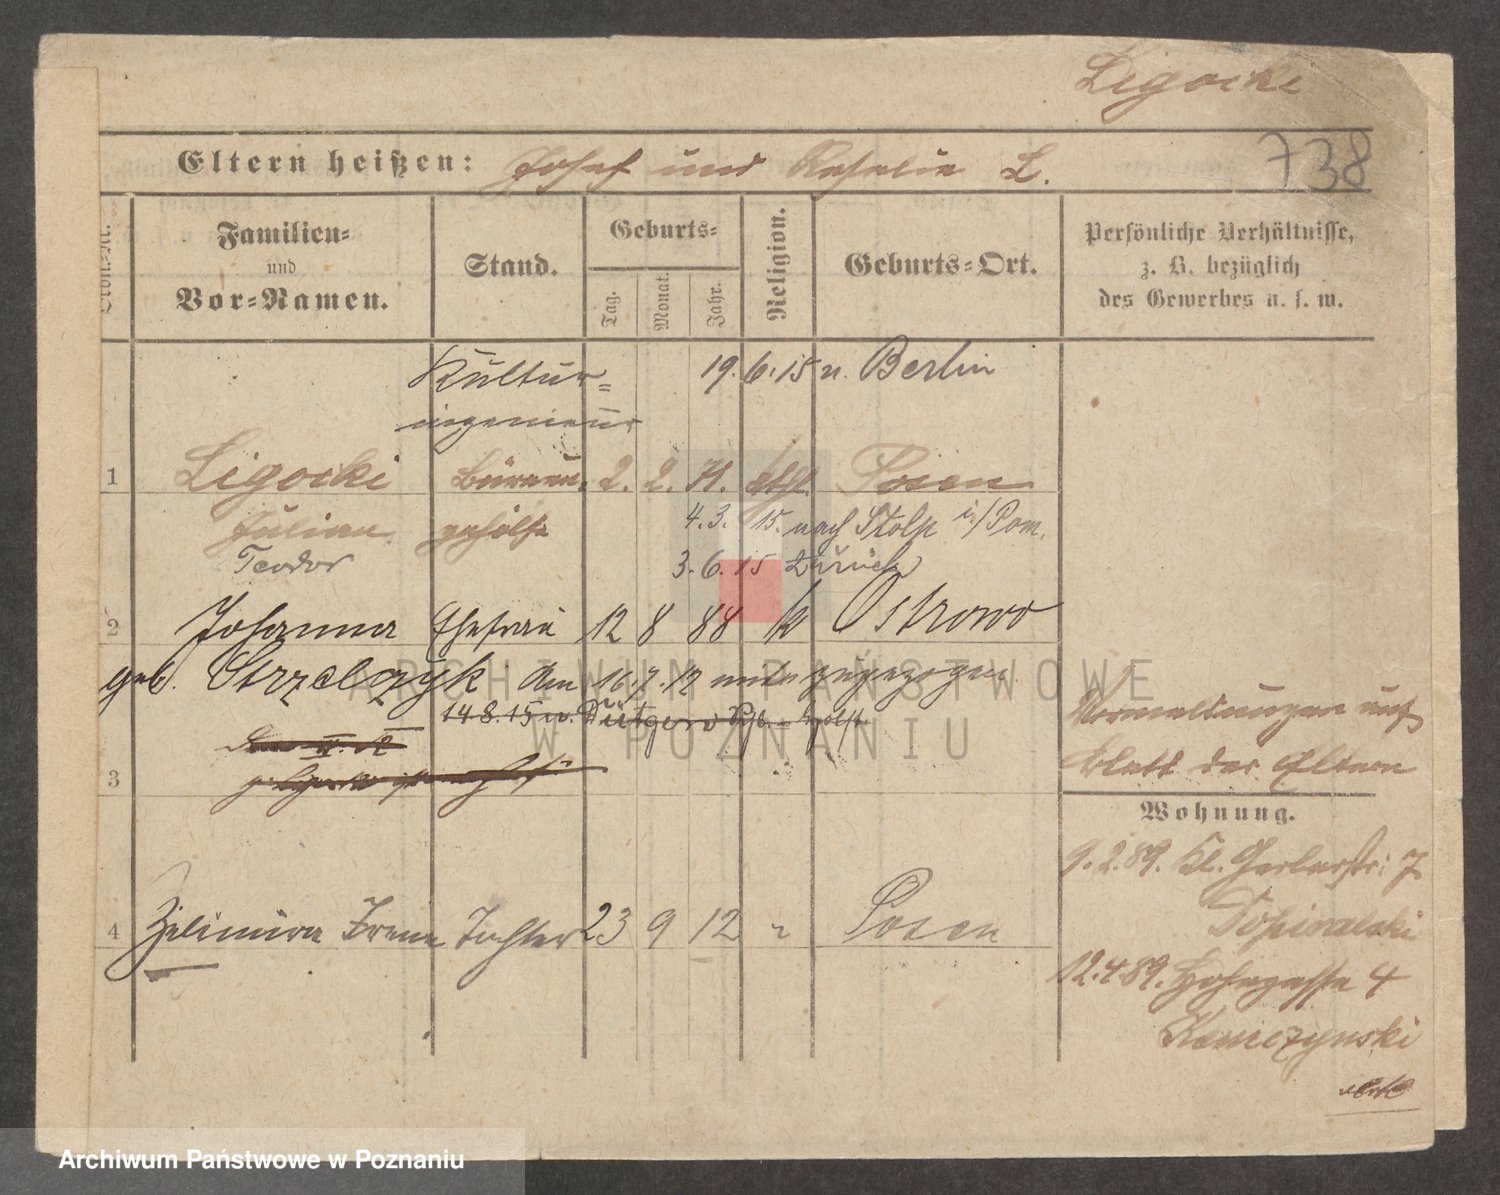 Ligocki
738
Eltern heißen: Josef und Rosalie L.
Ordn.-Nr.
Familien- und Vor-Namen.
Stand.
Geburts-
Tag. Monat. Jahr.
Religion.
Geburts-Ort.
Persönliche Verhältnisse, z. B. bezüglich des Gewerbes u. s. w.
Kultur- 19.6.15 n. Berlin
ingenieur
1 Ligocki Büreau- 2. 2. 71. kthl. Posen
Julian gehülfe 4.3.15. nach Stolp i/Pom.
Teodor 3.6.15 zurück
2 Johanna Ehefrau 12 8 88 k Ostrowo
geb. Strzelczyk Am 16.7.12 zugezogen
14.8.15 n.
3
Vormeldungen auf
Blatt der Eltern
Wohnung.
9.2.89. Kl. Gerberstr: 7
4 Irene Tochter 23 9 12 " Posen
12.4.89. Hohegasse 4
ARCHIWUM PAŃSTWOWE
W POZNANIU
Archiwum Państwowe w Poznaniu